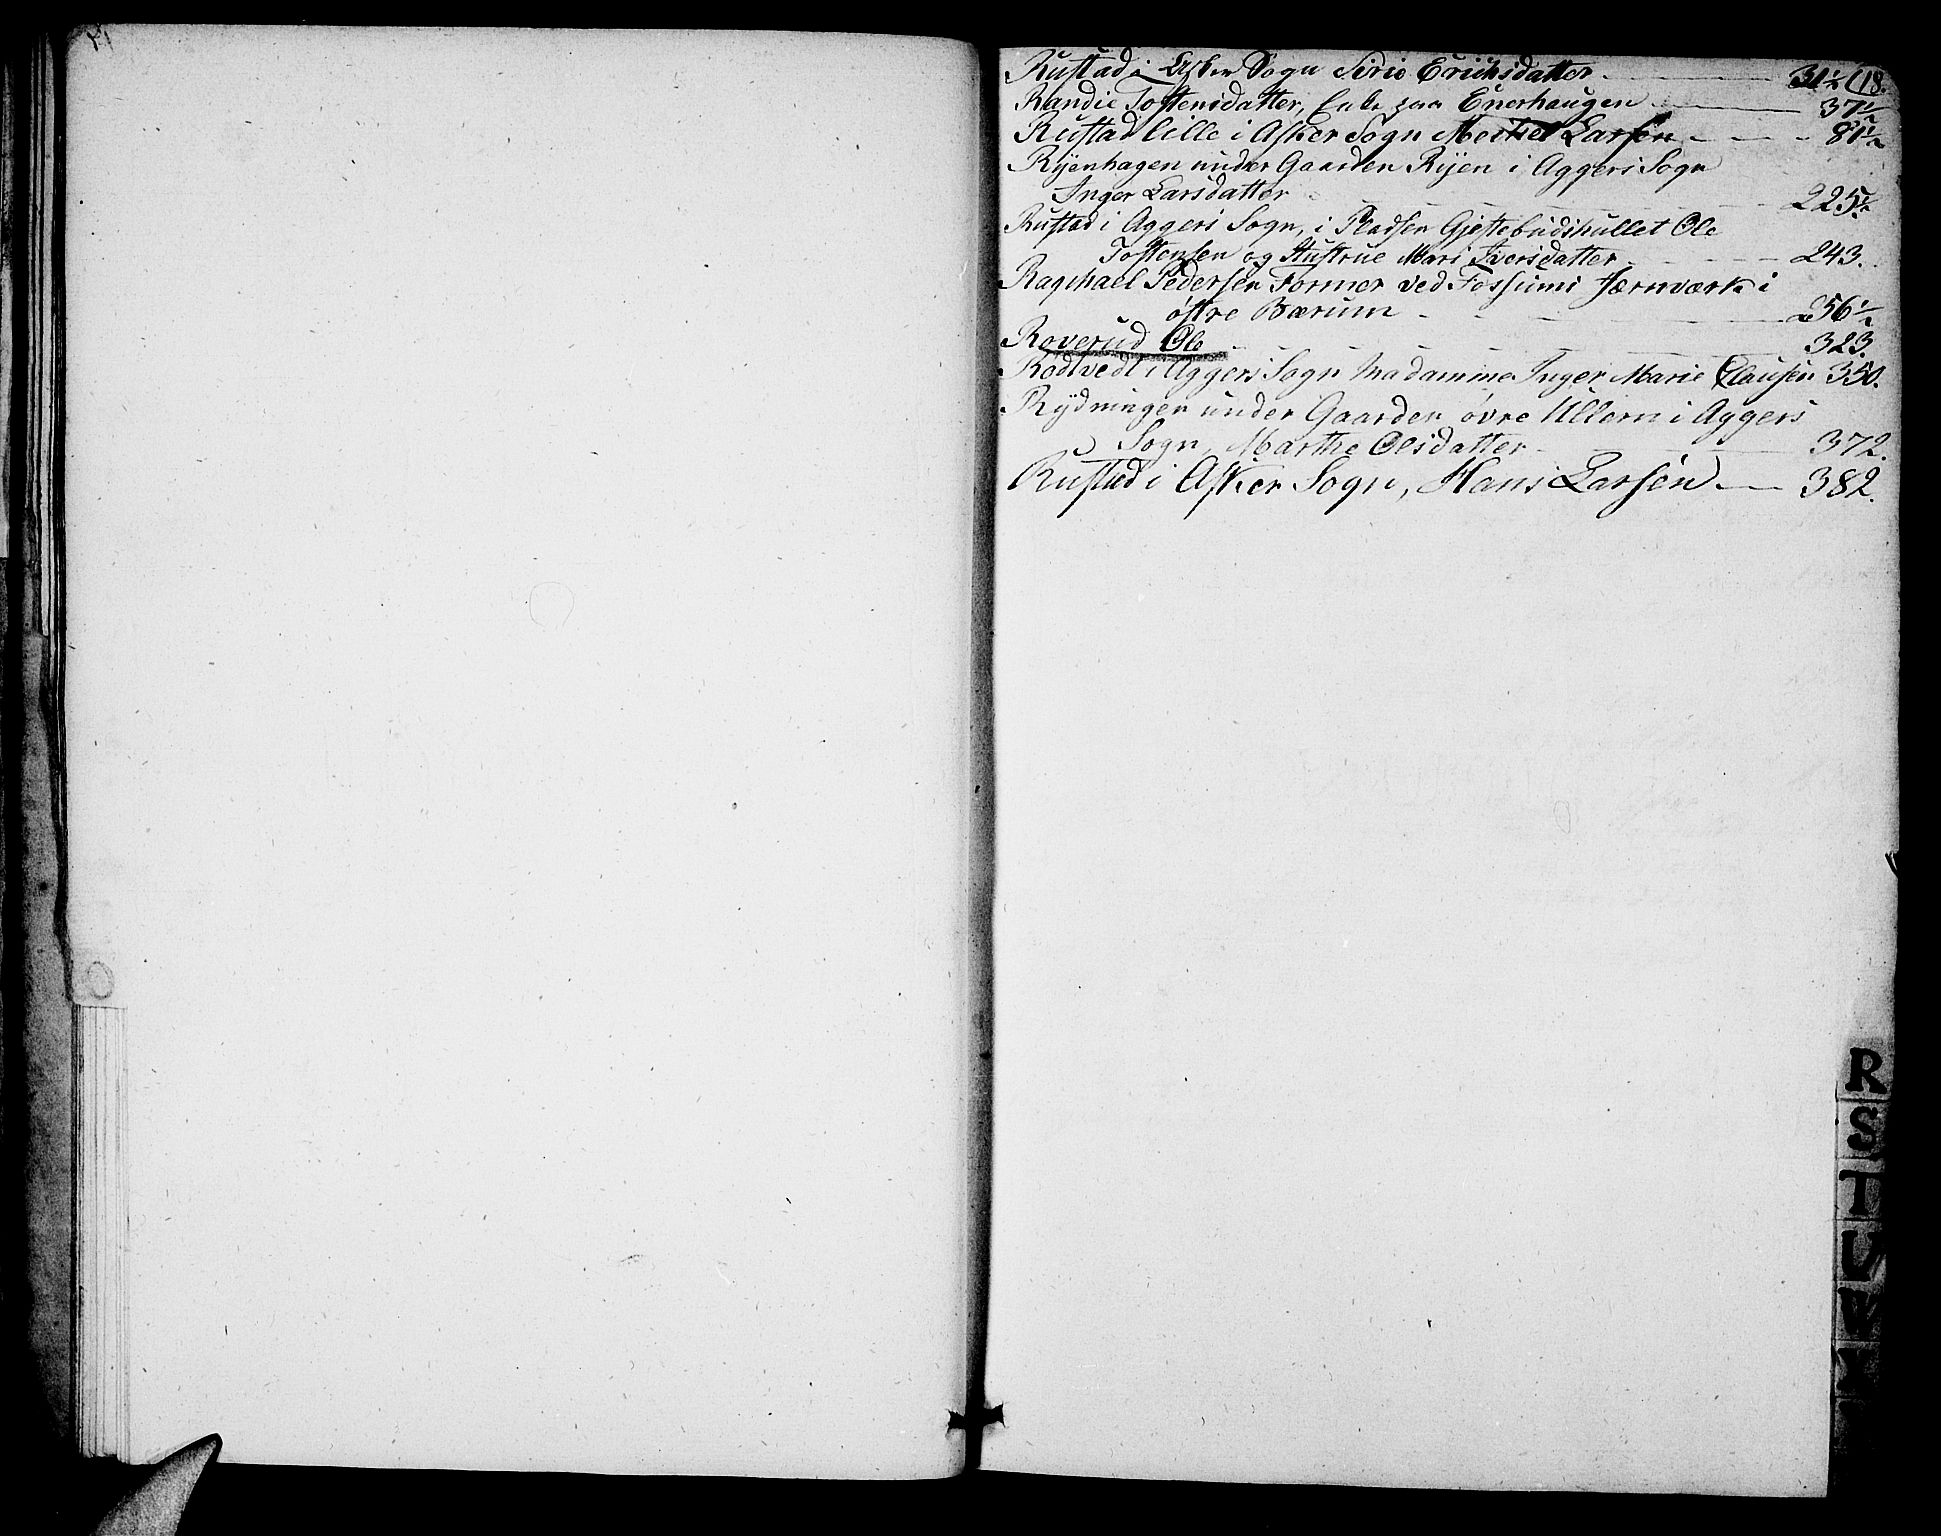 Rustad i Asker Sogn Sirie Erichsdatter 31½ (18.
Randie Tostensdatter, Enke paa Enerhaugen 37½
Rustad lille i Asker Sogn Larsen 81½
Ryenhagen under Gaarden Ryen i Aggers Sogn
Inger Larsdatter 225½
Rustad i Aggers Sogn, i Pladsen Gjestebudshullet Ole
Tostensen og Hustrue Mari Iversdatter 243.
Raphael Pedersen Former ved Fossums Jærnværk i
östre Bærum 256½
Roverud Ole 323.
Rödtvedt i Aggers Sogn Madamme Inger Marie Clausen 350.
Rydningen under Gaarden övre Ullern i Aggers
Sogn, Marthe Olsdatter 372.
Rustad i Asker Sogn, Hans Larsen 382.
R
S
T
U
W